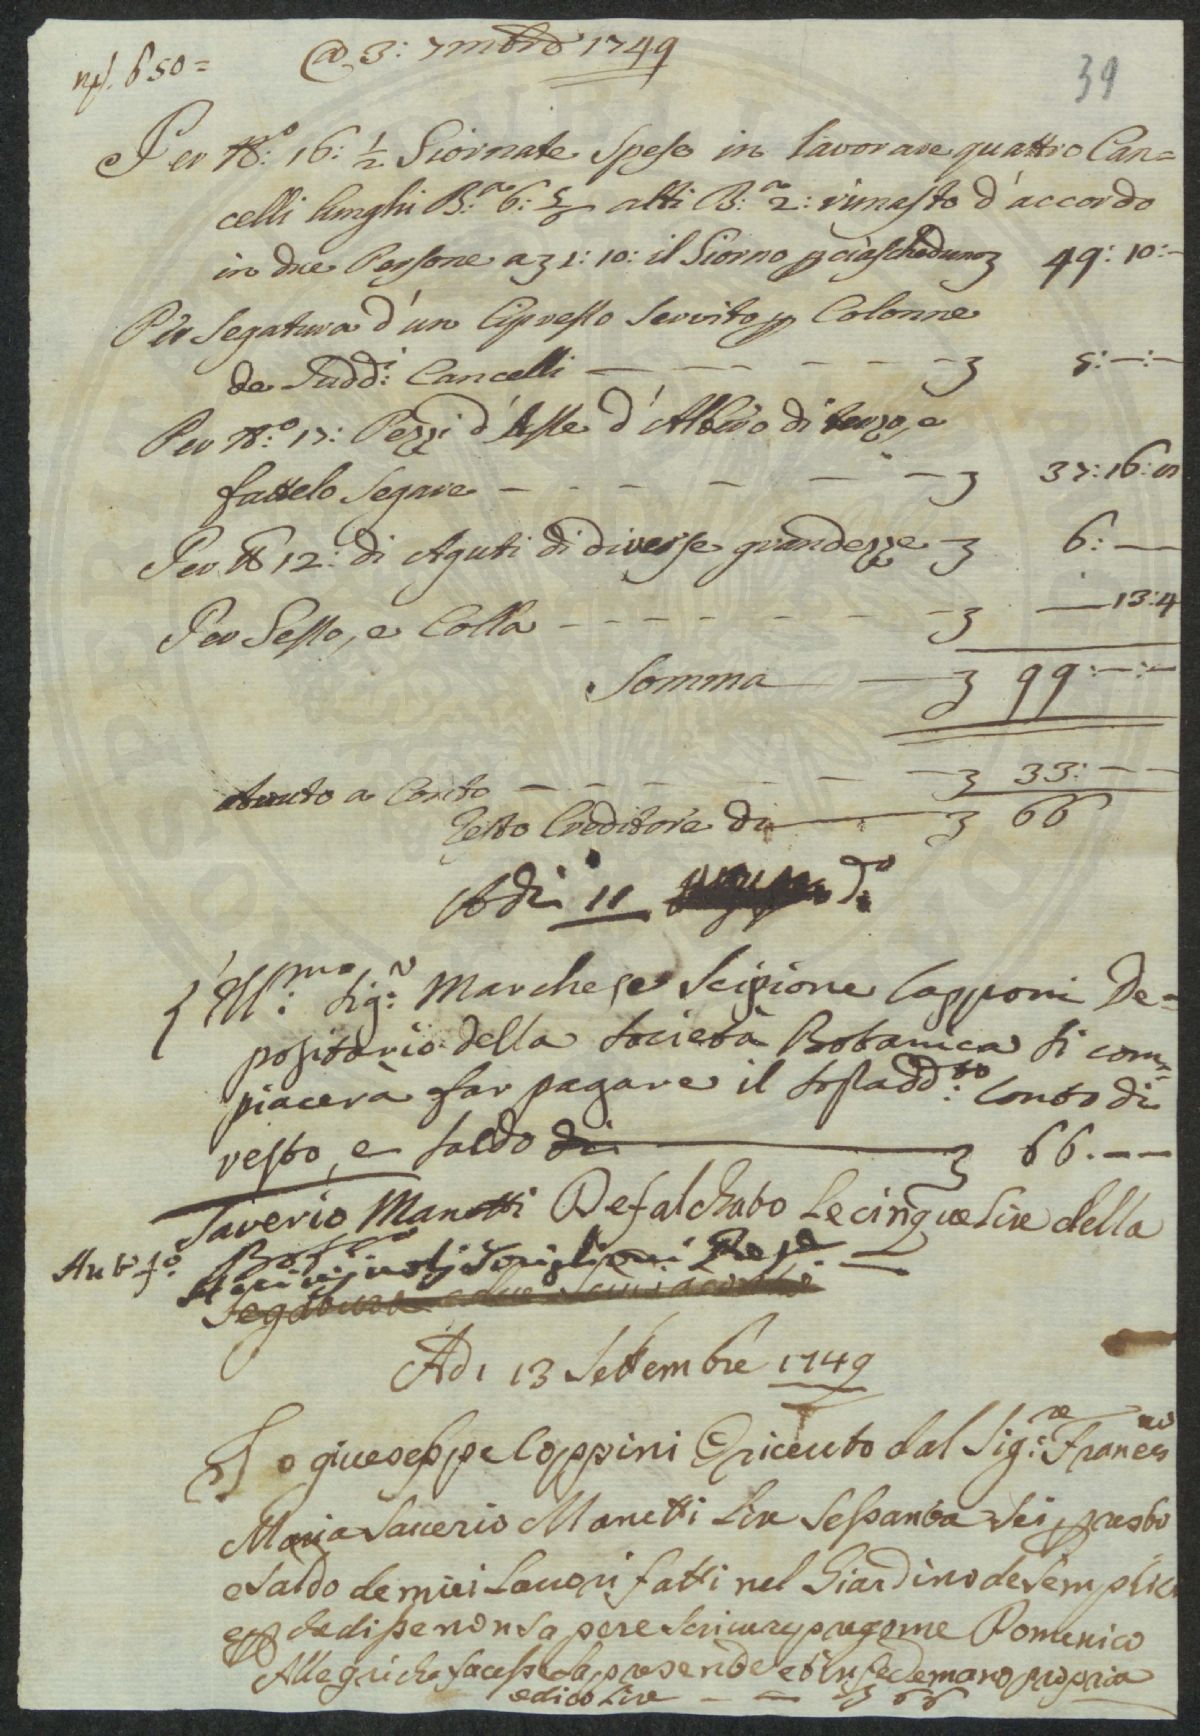 @ 3: 7mbre 1749
650=
39
Per N.o 16: 1/2 Giornate spese in lavorare quattro Can=
celli lunghi B.a 6: alti B.a 2: rimasto d'accordo
in due Persone a 1: 10: il Giorno p ciascheduno 49: 10:—
Per Segatura d'un Cipresso servito p Colonne
de Sudd.i Cancelli — — — — — 5:—:—
Per N.o 17: Pezzi d'Asse d'Albero di terzo, e
fattelo Segare — — — — — 37:16:
Per 12: di Aguti di diverse grandezze 6:—
Per Gesso, e Colla — — — — — —13:4
Somma — 99:—:—
a Conto — — — — — 33:— —
Resto Creditore di — 66
Adì 11 d.o
Ill.mo Sig.r Marchese Scipione Capponi De=
positario della Società Botanica si com=
piacerà far pagare il sopradd.to Conto di
resto, e saldo di — 66.——
Saverio Manetti Defalchato Le cinque Lire della
Segatura
Adi 13 Settembre 1749
Io giueseppe Coppini ò riceuto dal Sig.re Franc.co
Maria Saverio Manetti Lire Sessanta Sei p resto
e Saldo de miei Lauori fatti nel Giardino de Semplici
e p che disse non sapere scriuere prego me Domenico
Allegri che facesse la presende et in fede mano propria
e dico Lire — — 66